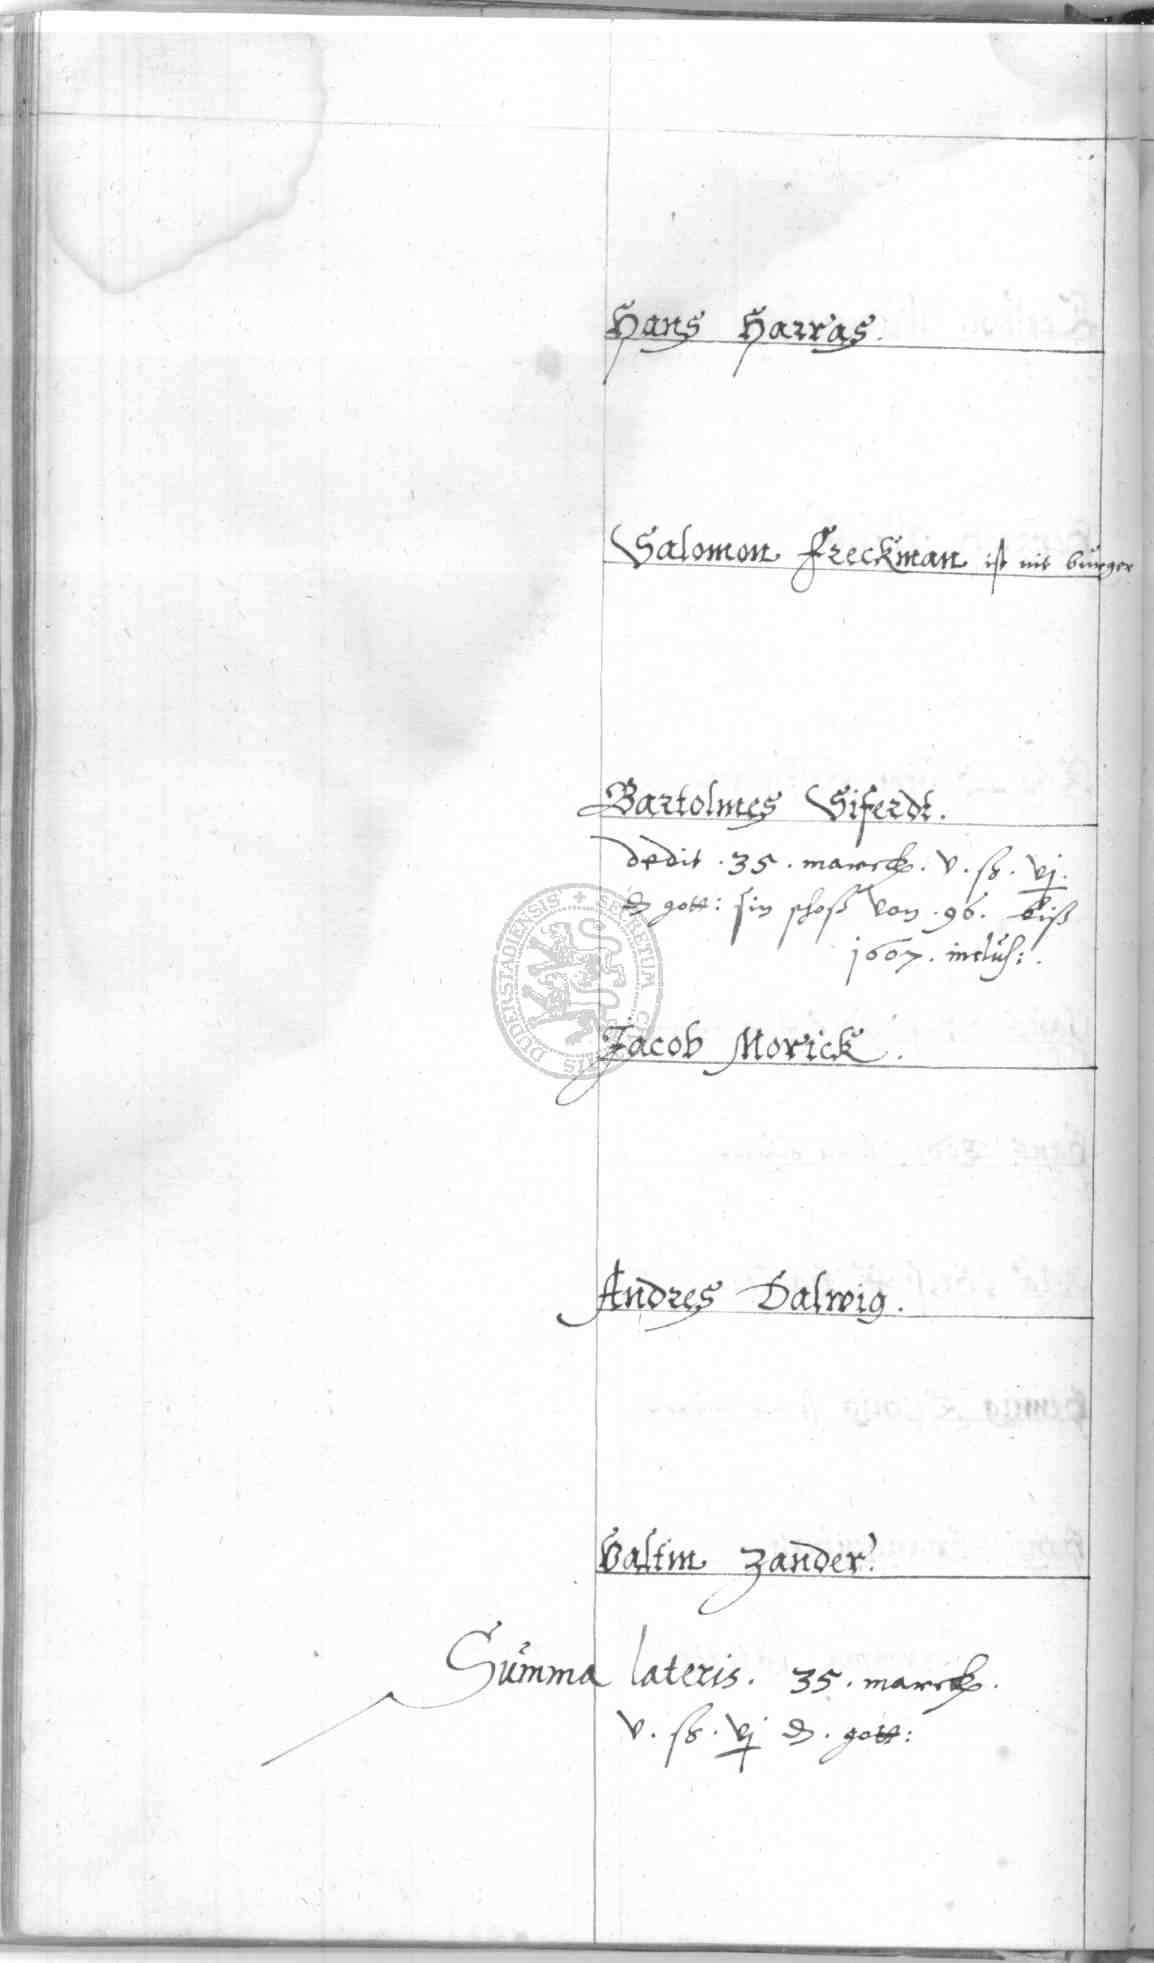 Hans Harras.
Salomon Freckman ist nit bürger
Bartolmes Siferdt.
dedit . 35 . marck . v . ß . vj .
₰ gott: sin schoß von . 96 . biß
1607 . inclus: .
Jacob Morick .
Andres Dalwig .
Valtin Zander .
Summa lateris . 35 . marck .
v . ß . vj ₰ . gott:
SECRETUM CIVITATIS DUDERSTADIENSIS